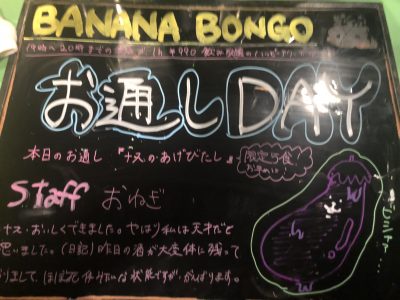 BANANA BONGO
19時〜20時までの 1h ¥990 飲み放題
お通しDAY
本日のお通し 『ナスのあげびたし』
限定5食!
お早めに
Staff おねぎ
ナス・おいしくできました。やはり私は天才だと
思いました。(日記)昨日の酒が大変体に残って
おりまして、ほぼ 状態ですが、がんばります。